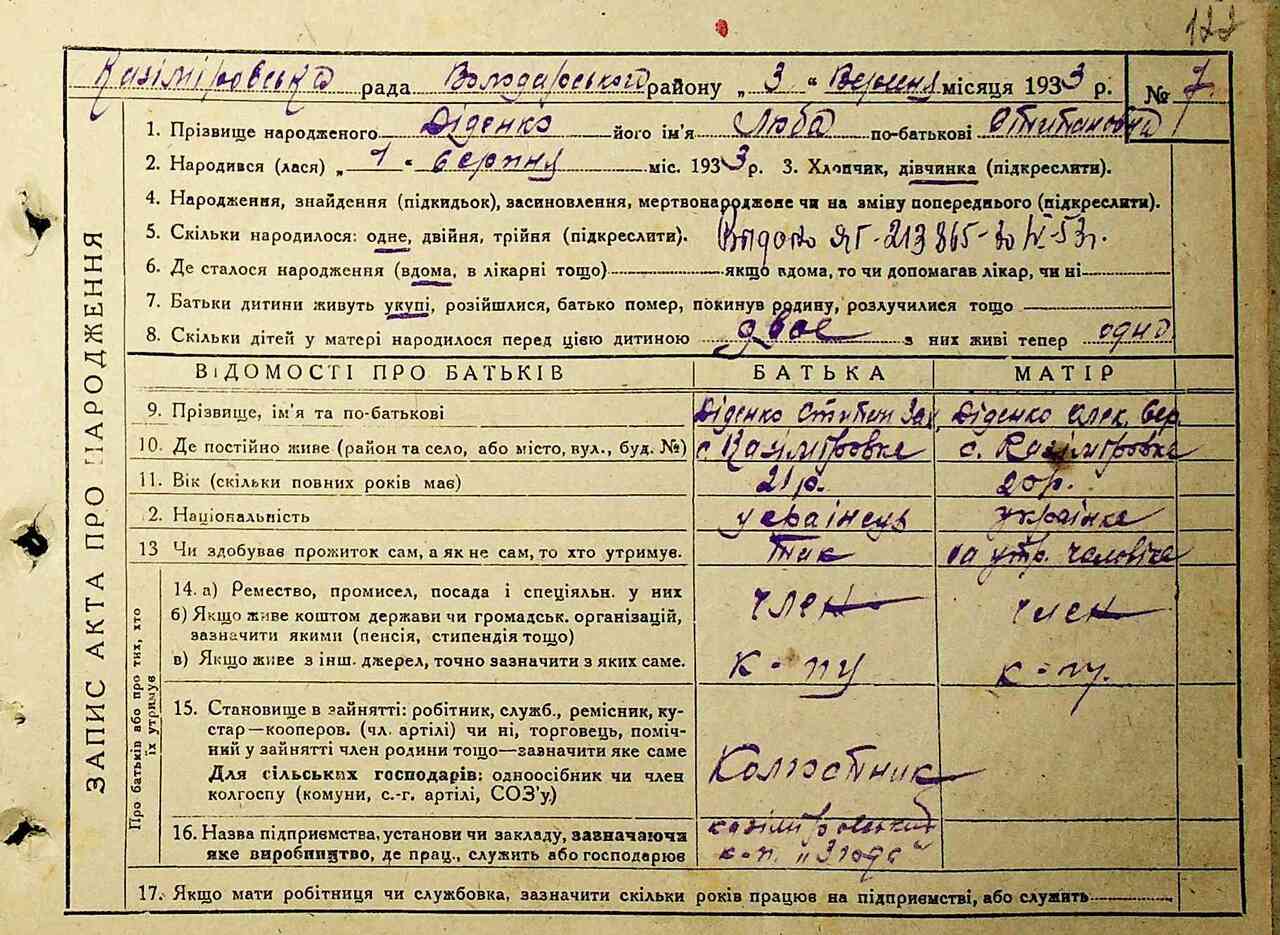 122
Казіміровська рада Володарського району „ 3 “ Вересня місяця 1933 р. № 7.
ЗАПИС АКТА ПРО НАРОДЖЕННЯ
1. Прізвище народженого Діденко його ім'я Люба по-батькові Стипановна
2. Народився (лася) „ 1 “ серпня міс. 1933 р. 3. Хлопчик, дівчинка (підкреслити).
4. Народження, знайдення (підкидьок), засиновлення, мертвонароджене чи на зміну попереднього (підкреслити).
5. Скільки народилося: одне, двійня, трійня (підкреслити). Видано ЯГ-213865-30/IX-53г.
6. Де сталося народження (вдома, в лікарні тощо) якщо вдома, то чи допомагав лікар, чи ні
7. Батьки дитини живуть укупі, розійшлися, батько помер, покинув родину, розлучилися тощо
8. Скільки дітей у матері народилося перед цією дитиною двоє з них живі тепер одно.
ВІДОМОСТІ ПРО БАТЬКІВ БАТЬКА МАТІР
9. Прізвище, ім'я та по-батькові Діденко Стипен Зах. Діденко Олек. Сер.
10. Де постійно живе (район та село, або місто, вул., буд. №) с. Казіміровке с. Казіміровке
11. Вік (скільки повних років має) 21 р. 20 р.
2. Національність українець українка
13 Чи здобував прожиток сам, а як не сам, то хто утримує. Так на утр. чаловіка
Про батьків або про тих, хто їх утримує
14. а) Ремество, промисел, посада і спеціяльн. у них член член
б) Якщо живе коштом держави чи громадськ. організацій,
зазначити якими (пенсія, стипендія тощо)
в) Якщо живе з інш. джерел, точно зазначити з яких саме. к-пу к-пу.
15. Становище в зайнятті: робітник, служб., ремісник, ку-
стар—кооперов. (чл. артілі) чи ні, торговець, поміч-
ний у зайнятті член родини тощо—зазначити яке саме
Для сільських господарів: одноосібник чи член Колгостник
колгоспу (комуни, с.-г. артілі, СОЗ'у.)
16. Назва підприємства, установи чи закладу, зазначаючи казіміровський
яке виробництво, де прац., служить або господарює к-п. „Згода“
17. Якщо мати робітниця чи службовка, зазначити скільки років працює на підприємстві, або служить